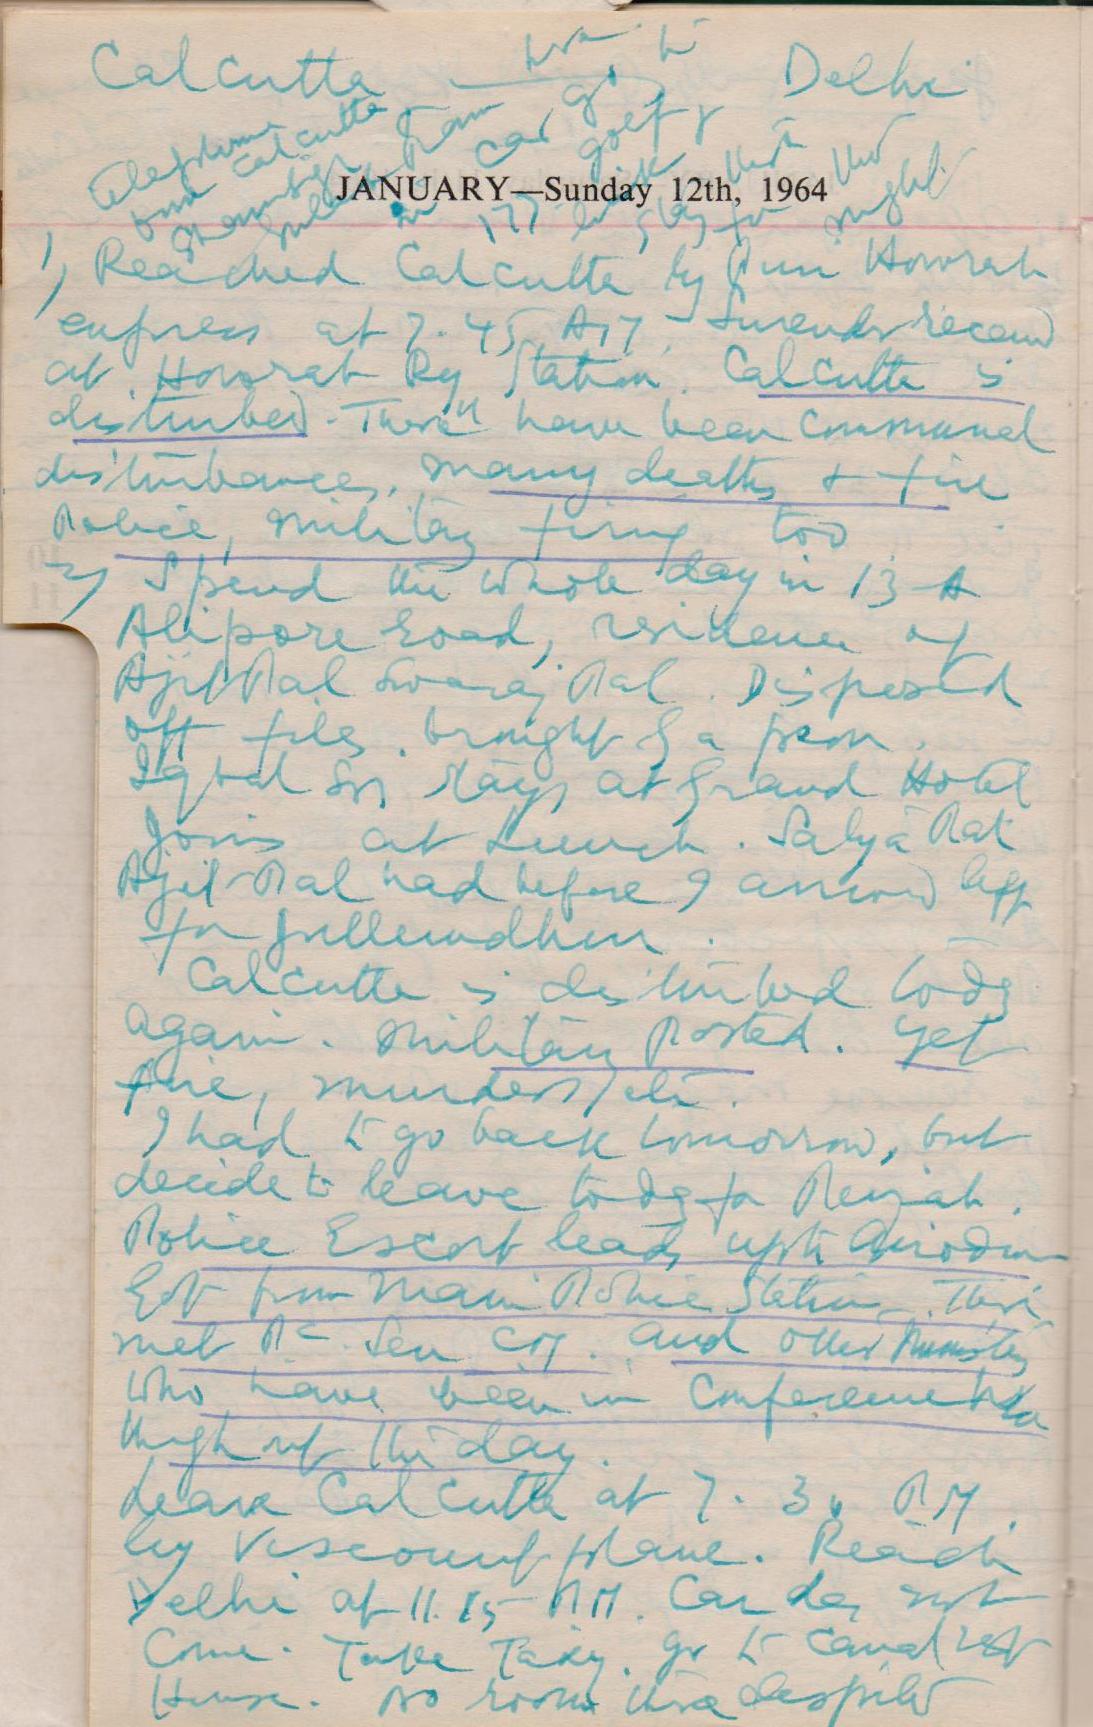 Calcutta Delhi
Telephone from
from Calcutta car golf
JANUARY—Sunday 12th, 1964
night
1) Reached Calcutta by Howrah
express at 7.45 AM. Surender received
at Howrah Ry Station. Calcutta is
disturbed. There have been communal
disturbances, many deaths & fire
Police, military firing too.
2) Spend the whole day in 13-A
Alipore Road, residence of
Ajit Pal Swaraj Pal. Disposed
off files brought by a peon.
Iqbal stays at Grand Hotel
Joins at Lunch. Satya Pal
Ajit Pal had before I arrived left
for Jullundhur.
Calcutta is disturbed today
again. Military Posted. Yet
fire, murders, etc.
I had to go back tomorrow, but
decide to leave today for Punjab.
Police Escort leads upto Airodrome
Got from Main Police Station. There
met P.C. Sen CM. and other Ministers
who have been in Conference
through out the day.
Leave Calcutta at 7.30 PM.
by Viscount plane. Reach
Delhi at 11.15 PM. Car does not
come. Take Taxi. go to Canal rest
House. No room there despite